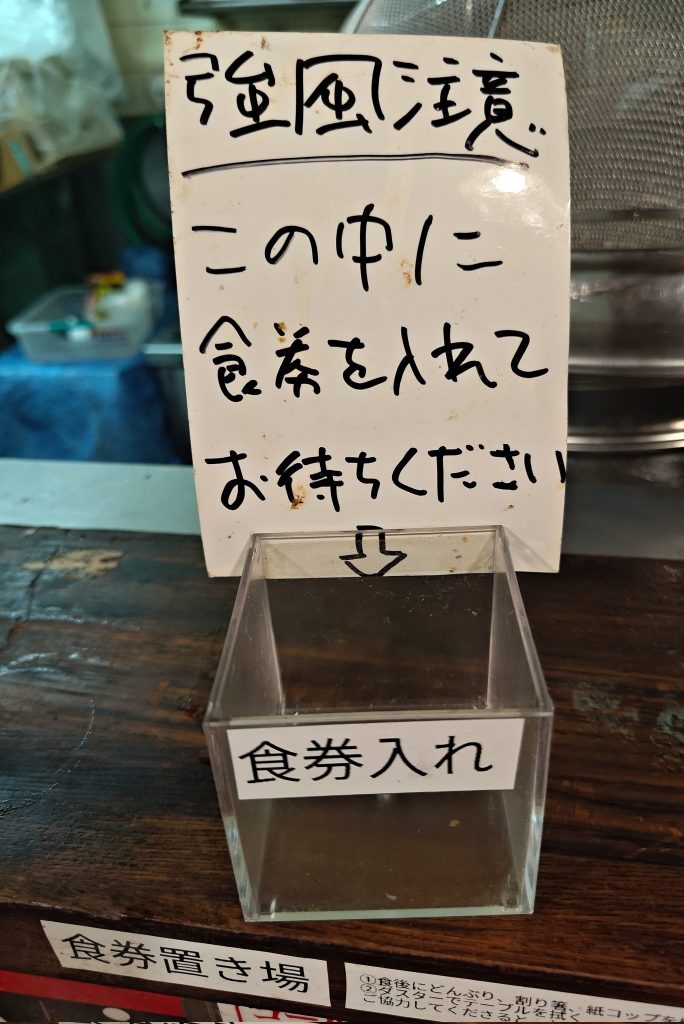 強風注意
この中に
食券を入れて
お待ちください
食券入れ
食券置き場
①食後にどんぶり、割り箸、紙コップを
②ダスターでテーブルを拭く
ご協力してくださると